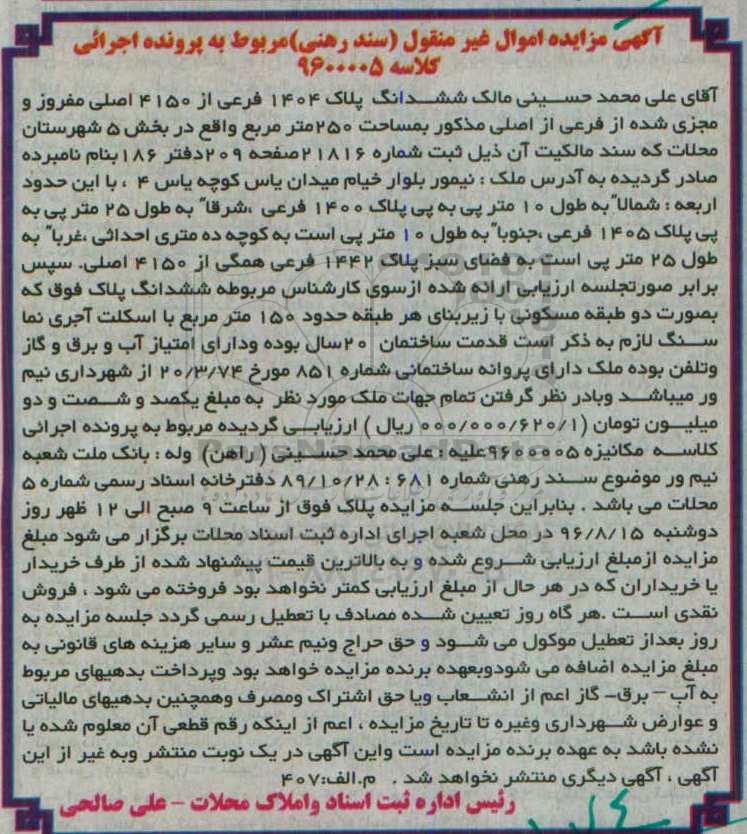 آگهی مزایده اموال غیر منقول (سند رهنی) مربوط به پرونده اجرائی
کلاسه ۹۶۰۰۰۰۵
آقای علی محمد حسینی مالک ششدانگ پلاک ۱۴۰۴ فرعی از ۴۱۵۰ اصلی مفروز و
مجزی شده از فرعی از اصلی مذکور بمساحت ۲۵۰متر مربع واقع در بخش ۵ شهرستان
محلات که سند مالکیت آن ذیل ثبت شماره ۲۱۸۱۶صفحه ۲۰۹دفتر ۱۸۶بنام نامبرده
صادر گردیده به آدرس ملک : نیمور بلوار خیام میدان یاس کوچه یاس ۴ ، با این حدود
اربعه : شمالا" به طول ۱۰ متر پی به پی پلاک ۱۴۰۰ فرعی ،شرقا" به طول ۲۵ متر پی به
پی پلاک ۱۴۰۵ فرعی ،جنوبا" به طول ۱۰ متر پی است به کوچه ده متری احداثی ،غربا" به
طول ۲۵ متر پی است به فضای سبز پلاک ۱۴۴۲ فرعی همگی از ۴۱۵۰ اصلی. سپس
برابر صورتجلسه ارزیابی ارائه شده ازسوی کارشناس مربوطه ششدانگ پلاک فوق که
بصورت دو طبقه مسکونی با زیربنای هر طبقه حدود ۱۵۰ متر مربع با اسکلت آجری نما
سنگ لازم به ذکر است قدمت ساختمان ۲۰سال بوده ودارای امتیاز آب و برق و گاز
وتلفن بوده ملک دارای پروانه ساختمانی شماره ۸۵۱ مورخ ۲۰/۳/۷۴ از شهرداری نیم
ور میباشد وبادر نظر گرفتن تمام جهات ملک مورد نظر به مبلغ یکصد و شصت و دو
میلیون تومان (۰۰۰/۰۰۰/۶۲۰/۱ ریال ) ارزیابی گردیده مربوط به پرونده اجرائی
کلاسه مکانیزه ۹۶۰۰۰۰۵علیه : علی محمد حسینی ( راهن) وله : بانک ملت شعبه
نیم ور موضوع سند رهنی شماره ۶۸۱ : ۸۹/۱۰/۲۸ دفترخانه اسناد رسمی شماره ۵
محلات می باشد . بنابراین جلسه مزایده پلاک فوق از ساعت ۹ صبح الی ۱۲ ظهر روز
دوشنبه ۹۶/۸/۱۵ در محل شعبه اجرای اداره ثبت اسناد محلات برگزار می شود مبلغ
مزایده ازمبلغ ارزیابی شروع شده و به بالاترین قیمت پیشنهاد شده از طرف خریدار
یا خریداران که در هر حال از مبلغ ارزیابی کمتر نخواهد بود فروخته می شود ، فروش
نقدی است .هر گاه روز تعیین شده مصادف با تعطیل رسمی گردد جلسه مزایده به
روز بعداز تعطیل موکول می شود و حق حراج ونیم عشر و سایر هزینه های قانونی به
مبلغ مزایده اضافه می شودوبعهده برنده مزایده خواهد بود وپرداخت بدهیهای مربوط
به آب – برق– گاز اعم از انشعاب ویا حق اشتراک ومصرف وهمچنین بدهیهای مالیاتی
و عوارض شهرداری وغیره تا تاریخ مزایده ، اعم از اینکه رقم قطعی آن معلوم شده یا
نشده باشد به عهده برنده مزایده است واین آگهی در یک نوبت منتشر وبه غیر از این
آگهی ، آگهی دیگری منتشر نخواهد شد . م.الف:۴۰۷
رئیس اداره ثبت اسناد واملاک محلات - علی صالحی